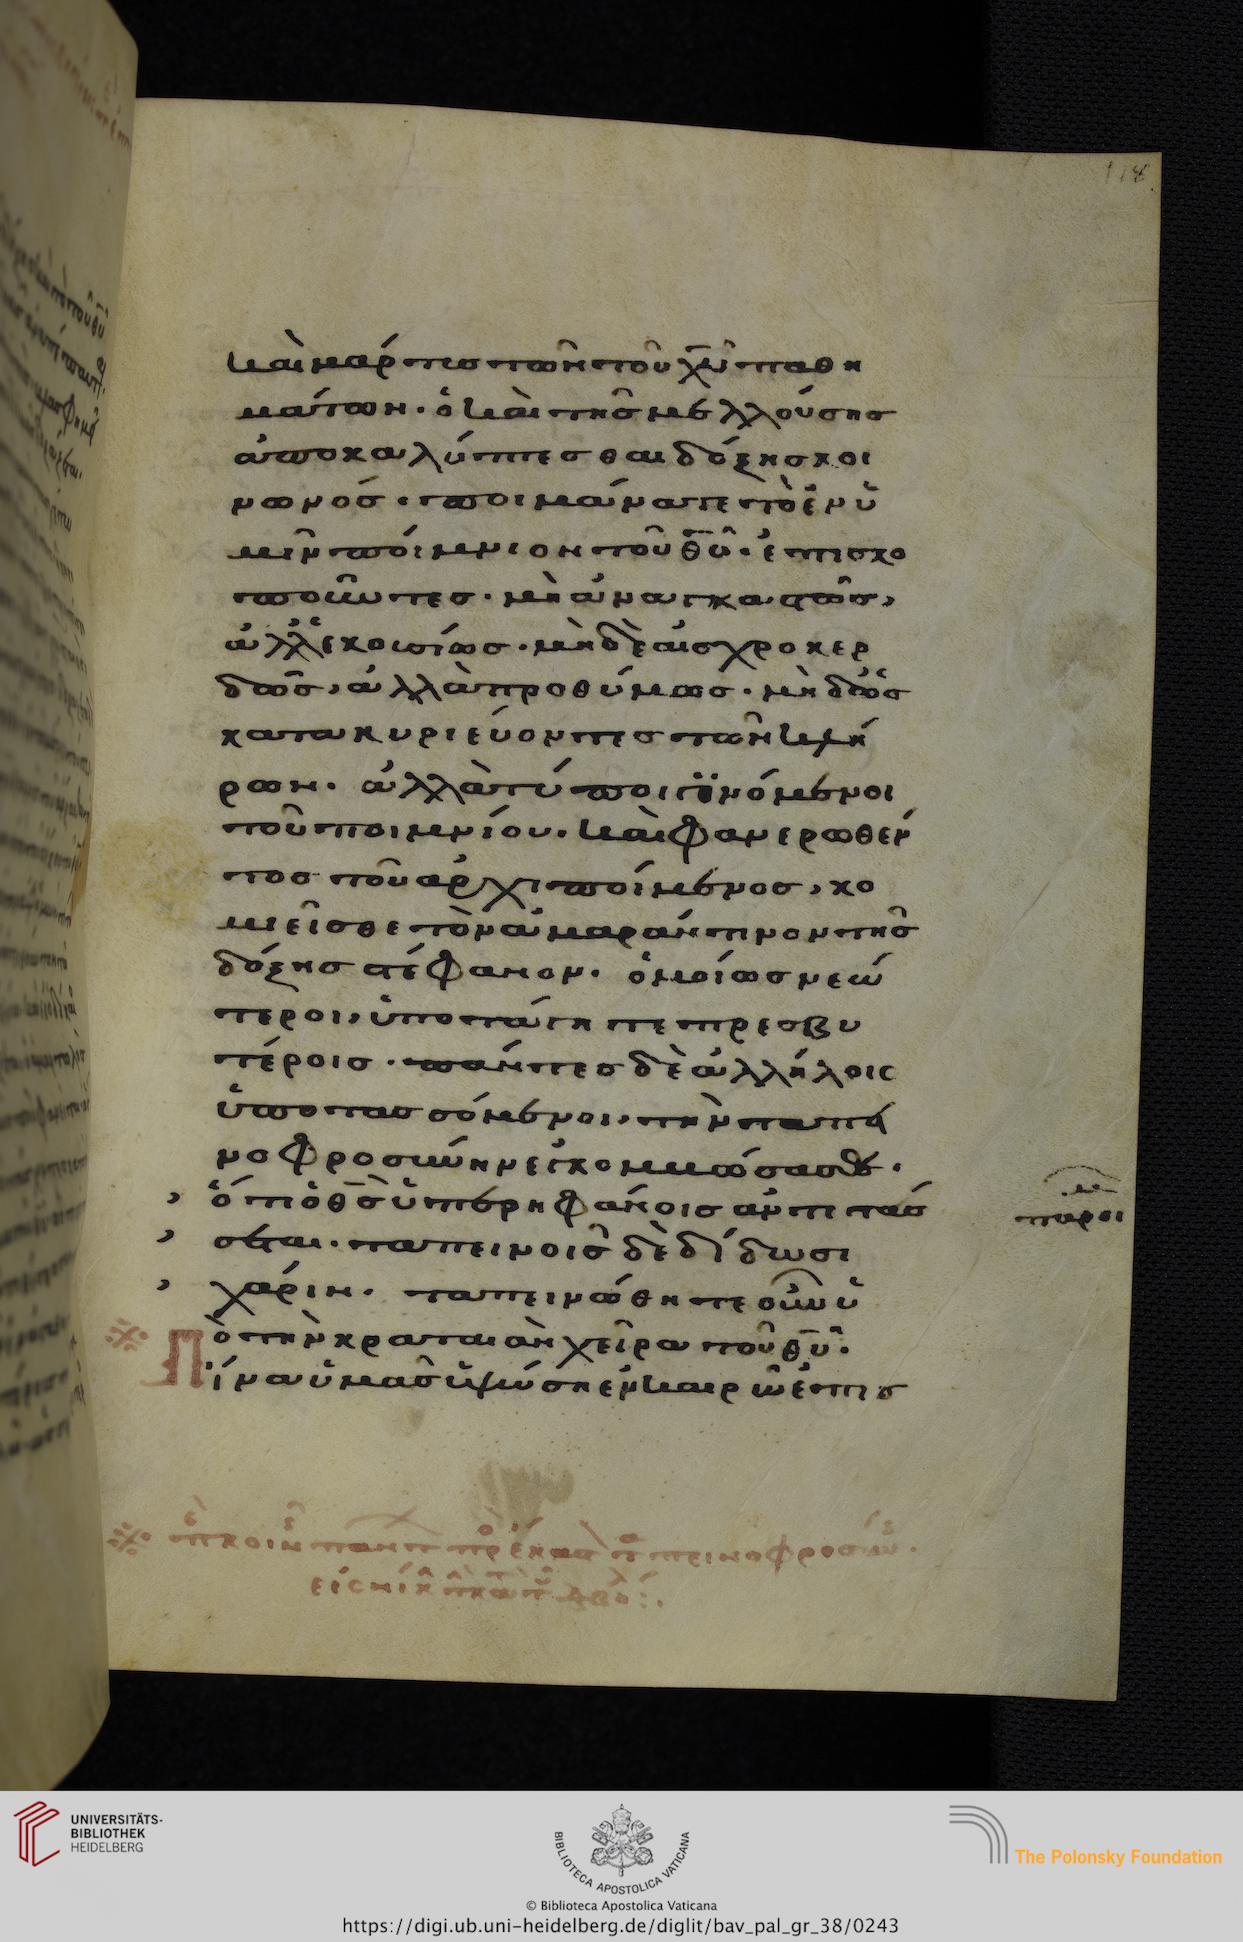 118
καὶ μάρτυς τῶν τοῦ χ̅υ̅ παθη
μάτων· ὁ καὶ τῆς μελλούσης
ἀποκαλύπτεσθαι δόξης κοι
νωνός· ποιμάνατε τὸ ἐν ὑ
μῖν ποίμνιον τοῦ θ̅υ̅· ἐπισκο
ποῦντες· μὴ ἀναγκαστῶς,
ἀλλ' ἑκουσίως· μὴ δὲ αἰσχροκερ
δῶς, ἀλλὰ προθύμως· μηδ' ὡς
κατακυριεύοντες τῶν κλή
ρων· ἀλλὰ τύποι γϊνόμενοι
τοῦ ποιμνίου· καὶ φανερωθέν
τος τοῦ ἀρχιποίμενος, κο
μιεῖσθε τὸν ἀμαράντινον τῆς
δόξης στέφανον· ὁμοίως νεώ
τεροι, ὑποτάγητε πρεσβυ
τέροις· πάντες δὲ ἀλλήλοις
ὑποτασσόμενοι, τὴν ταπει
νοφροσύνην ἐγκομβώσασθε·
ὅτι ὁ θ̅ς̅ ὑπερηφάνοις ἀντιτάσ
σεται· ταπεινοῖς δὲ δίδωσι
χάριν· ταπεινώθητε οὖν ὑ
πὸ τὴν κραταιὰν χεῖρα τοῦ θ̅υ̅·
ἵνα ὑμᾶς ὑψώσῃ ἐν καιρῶ ἐπισ
παροι
UNIVERSITÄTS-
BIBLIOTHEK
HEIDELBERG
BIBLIOTECA APOSTOLICA VATICANA
© Biblioteca Apostolica Vaticana
The Polonsky Foundation
https://digi.ub.uni-heidelberg.de/diglit/bav_pal_gr_38/0243